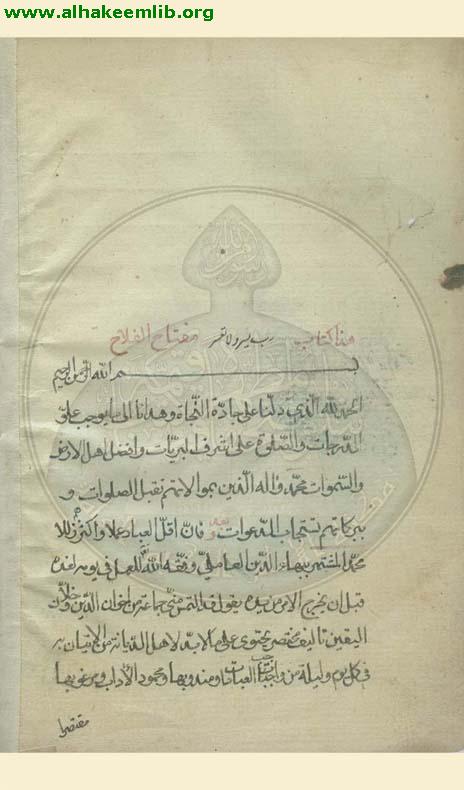 www.alhakeemlib.org
هذا كتاب رب يسر ولا تعسر مفتاح الفلاح
بسم الله الرحمن الرحيم
الحمد لله الذي دلنا على جادة النجاة وهدانا الى ما يوجب علو
الدرجات والصلوة على اشرف البريات وافضل اهل الارض
والسموات محمد واله الذين بموالاتهم تقبل الصلوات و
ببركاتهم تستجاب الدعوات وبعد فان اقل العباد عملا واكثرهم زللا
محمد المشتهر ببهاء الدين العاملي وفقه الله للعمل في يومه لغده
قبل ان يخرج الامر من يده يقول قد التمس مني جماعة من اخوان الدين وخلان
اليقين تاليف مختصر يحتوي على ما لا بد لاهل الديانة من الاتيان به
في كل يوم وليلة من واجبات العبادات ومندوبها ومحمود الآداب ومرغوبها
مقتصرا